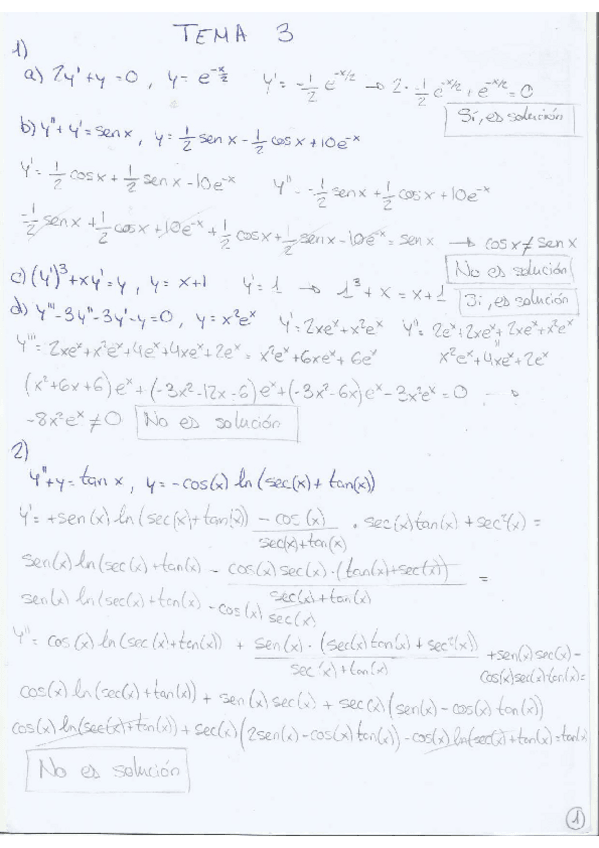 TEMA 3
1)
a) 2y'+y=0, y=e^{-x/2} y'=-1/2 e^{-x/2} → 2·-1/2 e^{-x/2}+e^{-x/2}=0
Sí, es solución
b) y''+y'=senx, y=1/2 senx-1/2 cosx+10e^{-x}
y'=1/2 cosx+1/2 senx-10e^{-x} y''=-1/2 senx+1/2 cosx+10e^{-x}
=-1/2 senx+1/2 cosx+10e^{-x}+1/2 cosx+1/2 senx-10e^{-x}=senx → cosx≠senx
No es solución
c) (y')^3+xy'=y, y=x+1 y'=1 → 1^3+x=x+1
Si, es solución
d) y'''-3y''-3y'-y=0, y=x^2e^x y'=2xe^x+x^2e^x y''=2e^x+2xe^x+2xe^x+x^2e^x
y'''=2xe^x+x^2e^x+4e^x+4xe^x+2e^x=x^2e^x+6xe^x+6e^x x^2e^x+4xe^x+2e^x
(x^2+6x+6)e^x+(-3x^2-12x-6)e^x+(-3x^2-6x)e^x-3x^2e^x=0
-8x^2e^x≠0 No es solución
2)
y''+y=tanx, y=-cos(x) ln(sec(x)+tan(x))
y'=+sen(x) ln(sec(x)+tan(x)) -cos(x)/(sec(x)+tan(x)) · sec(x)tan(x)+sec^2(x)=
sen(x) ln(sec(x)+tan(x)) - cos(x)sec(x)·(tan(x)+sec(x))/(sec(x)+tan(x)) =
sen(x) ln(sec(x)+tan(x)) -cos(x) sec(x)
y''=cos(x) ln(sec(x)+tan(x)) + sen(x)·(sec(x)tan(x)+sec^2(x))/(sec(x)+tan(x)) +sen(x)sec(x)-
cos(x)sec(x)tan(x)=
cos(x) ln(sec(x)+tan(x))+sen(x)sec(x)+sec(x)(sen(x)-cos(x)tan(x))
cos(x)ln(sec(x)+tan(x))+sec(x)(2sen(x)-cos(x)tan(x))-cos(x)ln(sec(x)+tan(x)=tan(x)
No es solución
1